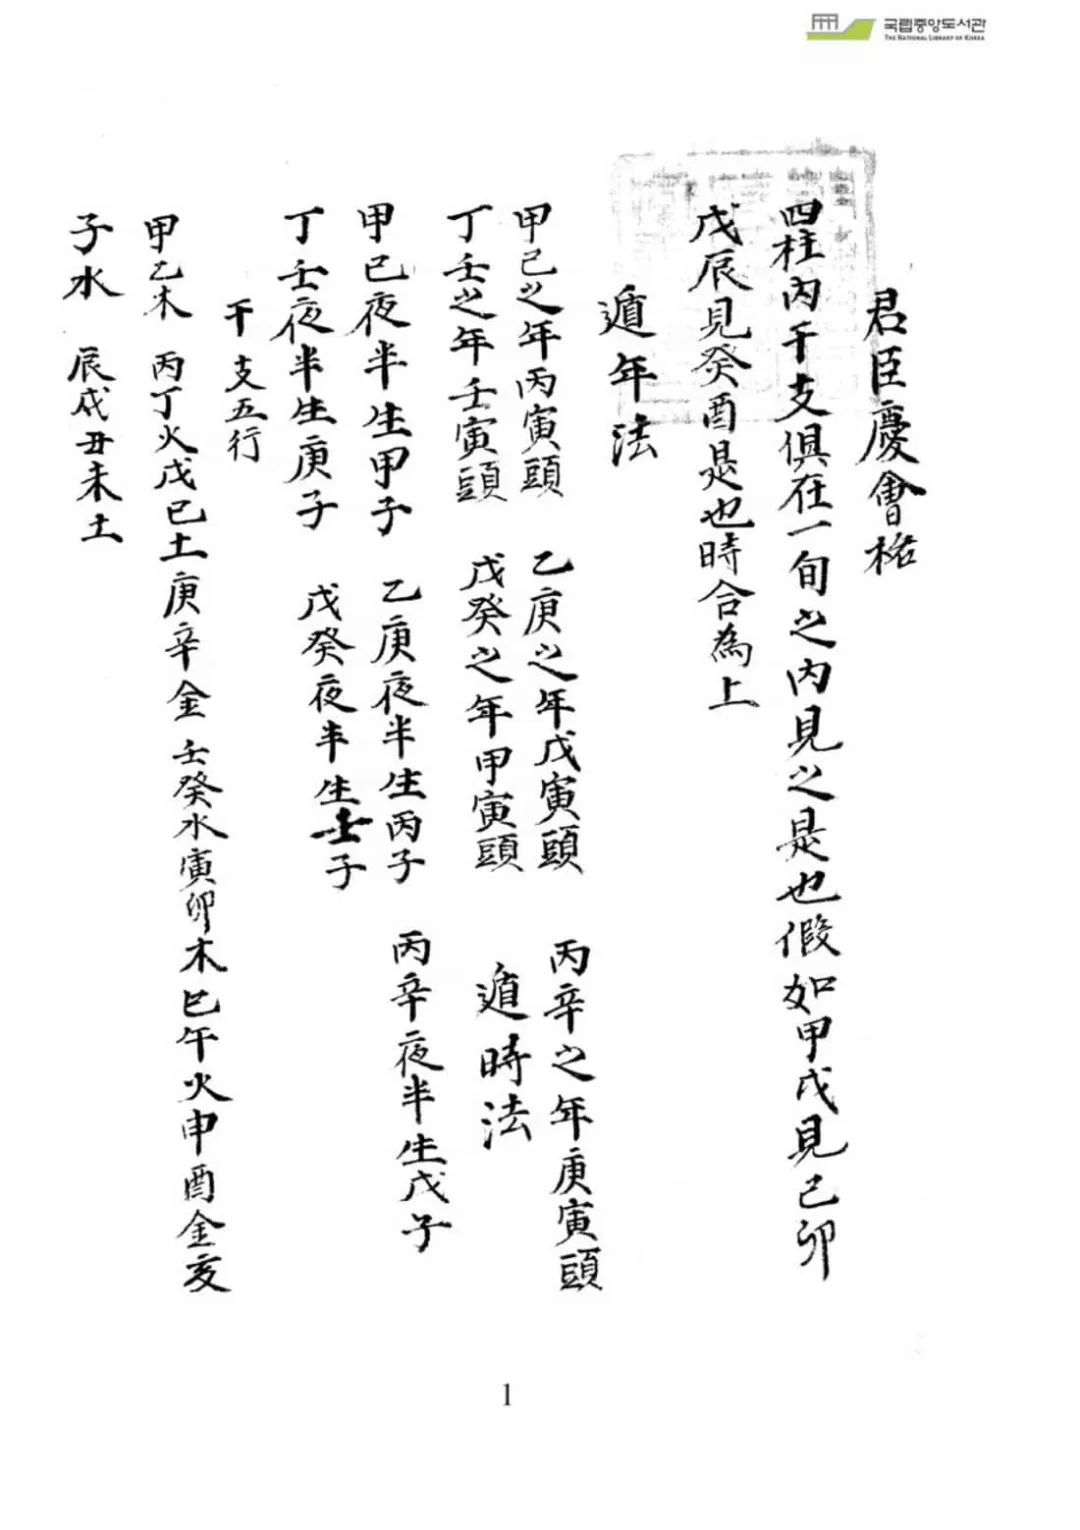 국립중앙도서관
THE NATIONAL LIBRARY OF KOREA
君臣慶會格
四柱内干支俱在一旬之内見之是也假如甲戌見己卯
戊辰見癸酉是也時合為上
遁年法
甲己之年丙寅頭 乙庚之年戊寅頭 丙辛之年庚寅頭
丁壬之年壬寅頭 戊癸之年甲寅頭 遁時法
甲己夜半生甲子 乙庚夜半生丙子 丙辛夜半生戊子
丁壬夜半生庚子 戊癸夜半生壬子
干支五行
甲乙木 丙丁火戊己土庚辛金 壬癸水寅卯木巳午火申酉金亥
子水 辰戌丑未土
1